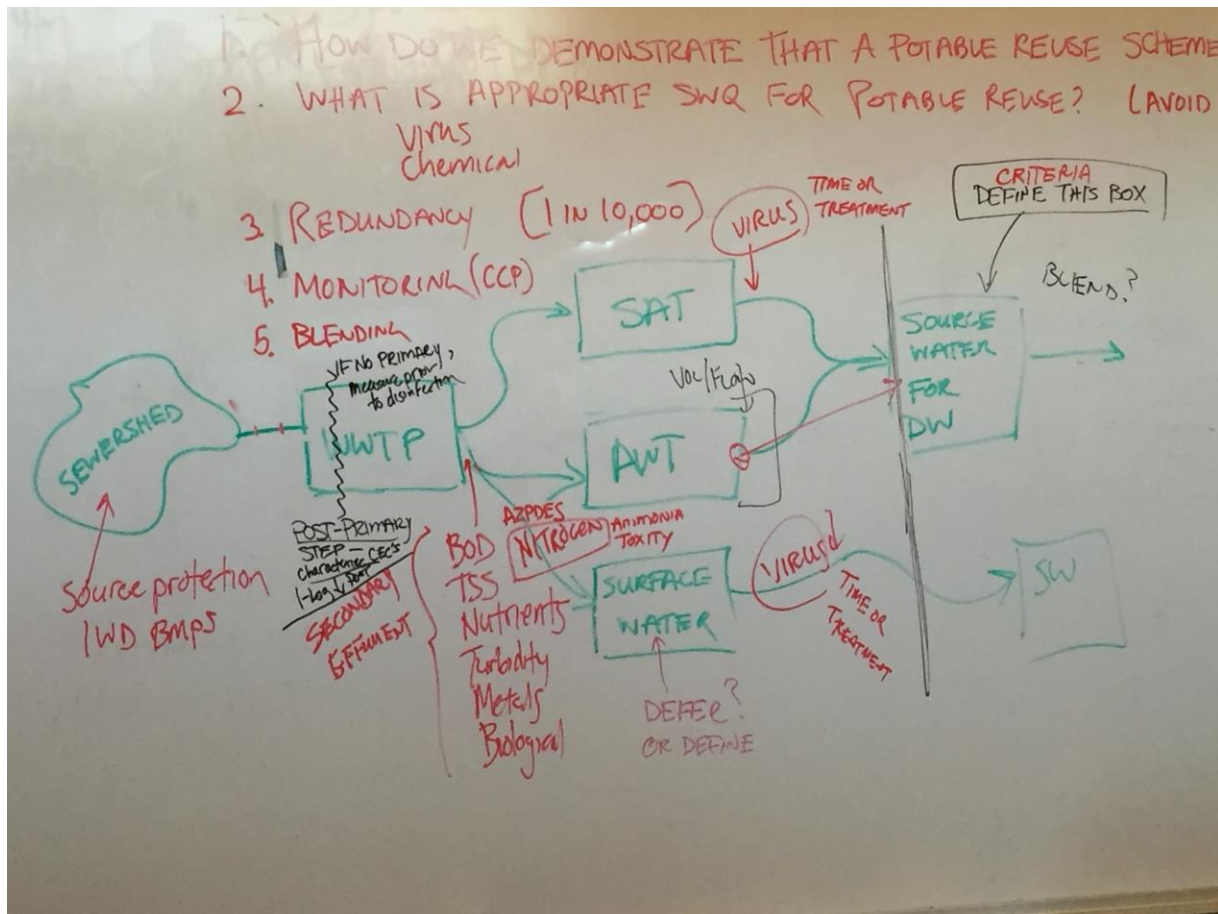 1. HOW DO WE DEMONSTRATE THAT A POTABLE REUSE SCHEME
2. WHAT IS APPROPRIATE SWQ FOR POTABLE REUSE? (AVOID
Virus
Chemical
3. REDUNDANCY (1 IN 10,000)
4. MONITORING (CCP)
5. BLENDING
VIRUS
TIME OR
TREATMENT
CRITERIA
DEFINE THIS BOX
BLEND?
SAT
SOURCE
WATER
FOR
DW
IF NO PRIMARY,
measure prior
to disinfection
SEWERSHED
WWTP
AWT
Source protection
IWD BMPS
POST-PRIMARY
STEP -
CEC's
1-log
SECONDARY
EFFLUENT
BOD
TSS
Nutrients
Turbidity
Metals
Biological
AZPDES
NITROGEN
Ammonia
TOXITY
SURFACE
WATER
DEFER?
OR DEFINE
VIRUS
TIME OR
TREATMENT
SW